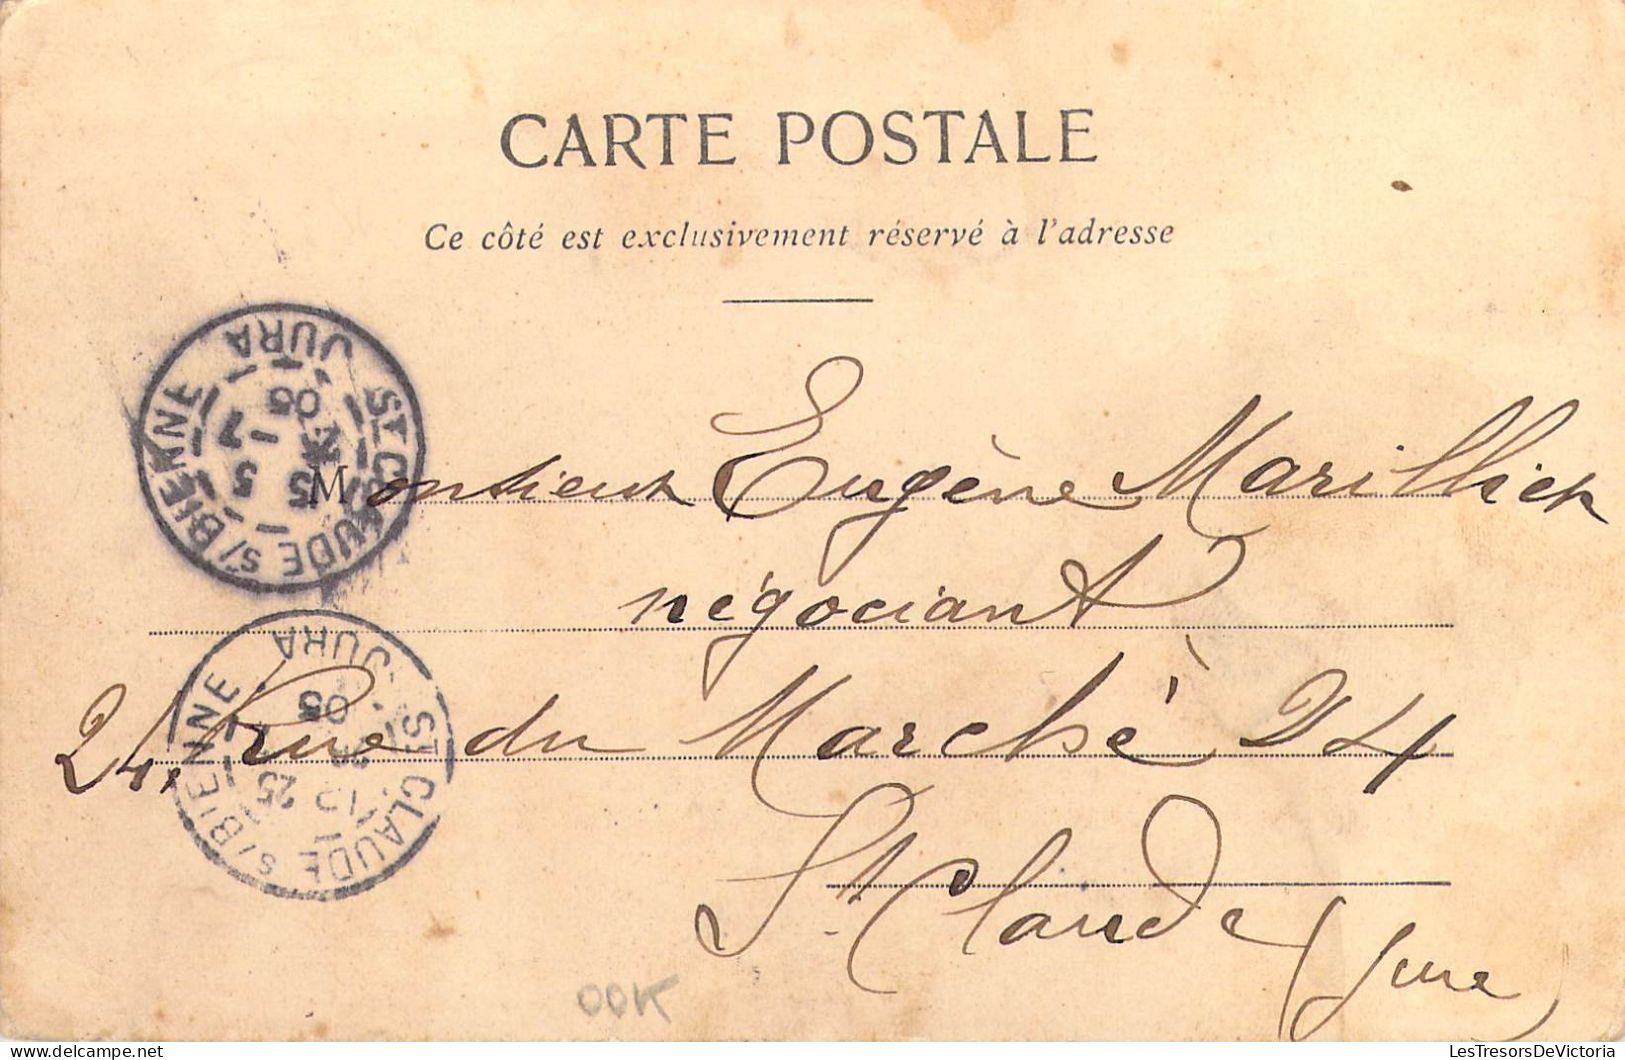 CARTE POSTALE
Ce côté est exclusivement réservé à l'adresse
Monsieur Eugène Marillier
négociant
24, Rue du Marché 24
St Claude (Jura)
ST CLAUDE S/BIENNE
JURA
ST CLAUDE S/BIENNE
JURA
25
05
OOK
LesTresorsDeVictoria